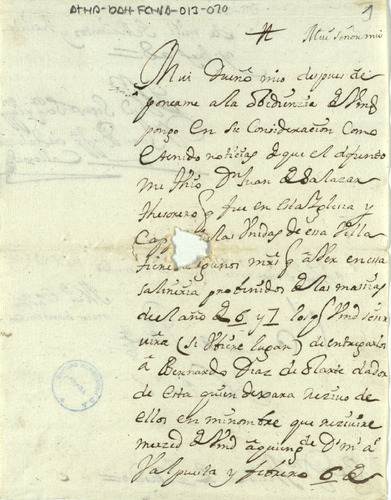 ATHA-DAH-FCHIA-013-070
1
Muy señor mio
Mui dueño mio despues de
ponerme a la obediencia de Vmd
pongo en su Consideracion Como
e tenido noticias de que el difunto
mi thio Dn Juan de Salazar
thesorero q fue en esta Yglesia y
Cap de las Vnidas de essa Villa
tiene algunos mrs q aver en essa
salineria probenidos de las
del año de 6 y 7 los q Vmd se ser
vira (si Vbiere lugar) de entregarlos
a Bernardo Diaz de dador
de esta quien dexara rezivo de
ellos en mi nombre que rezivire
merzed de Vmd a quien g de Dios m a
Valpuesta y febrero 6 de